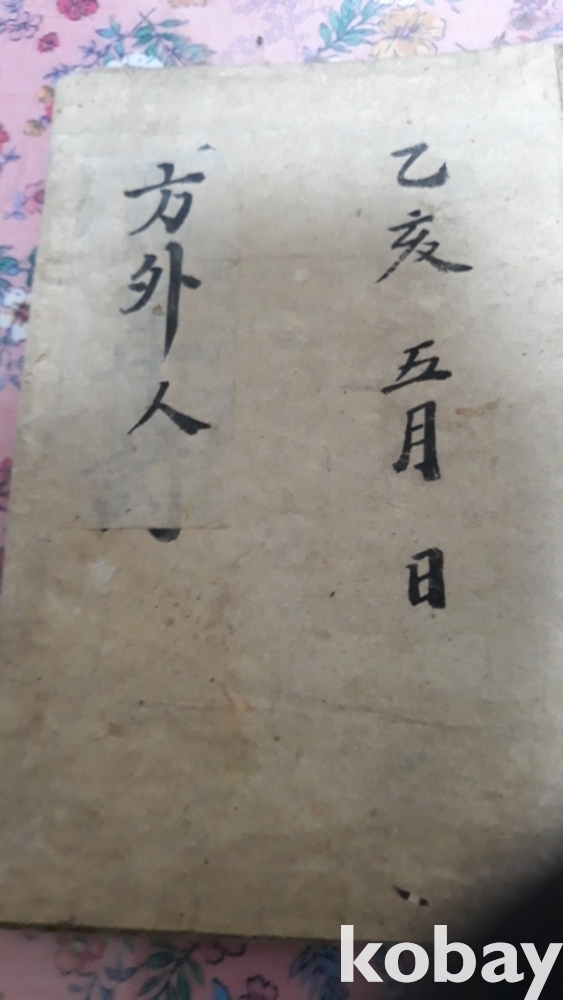 乙亥 五月 日
方外人
kobay